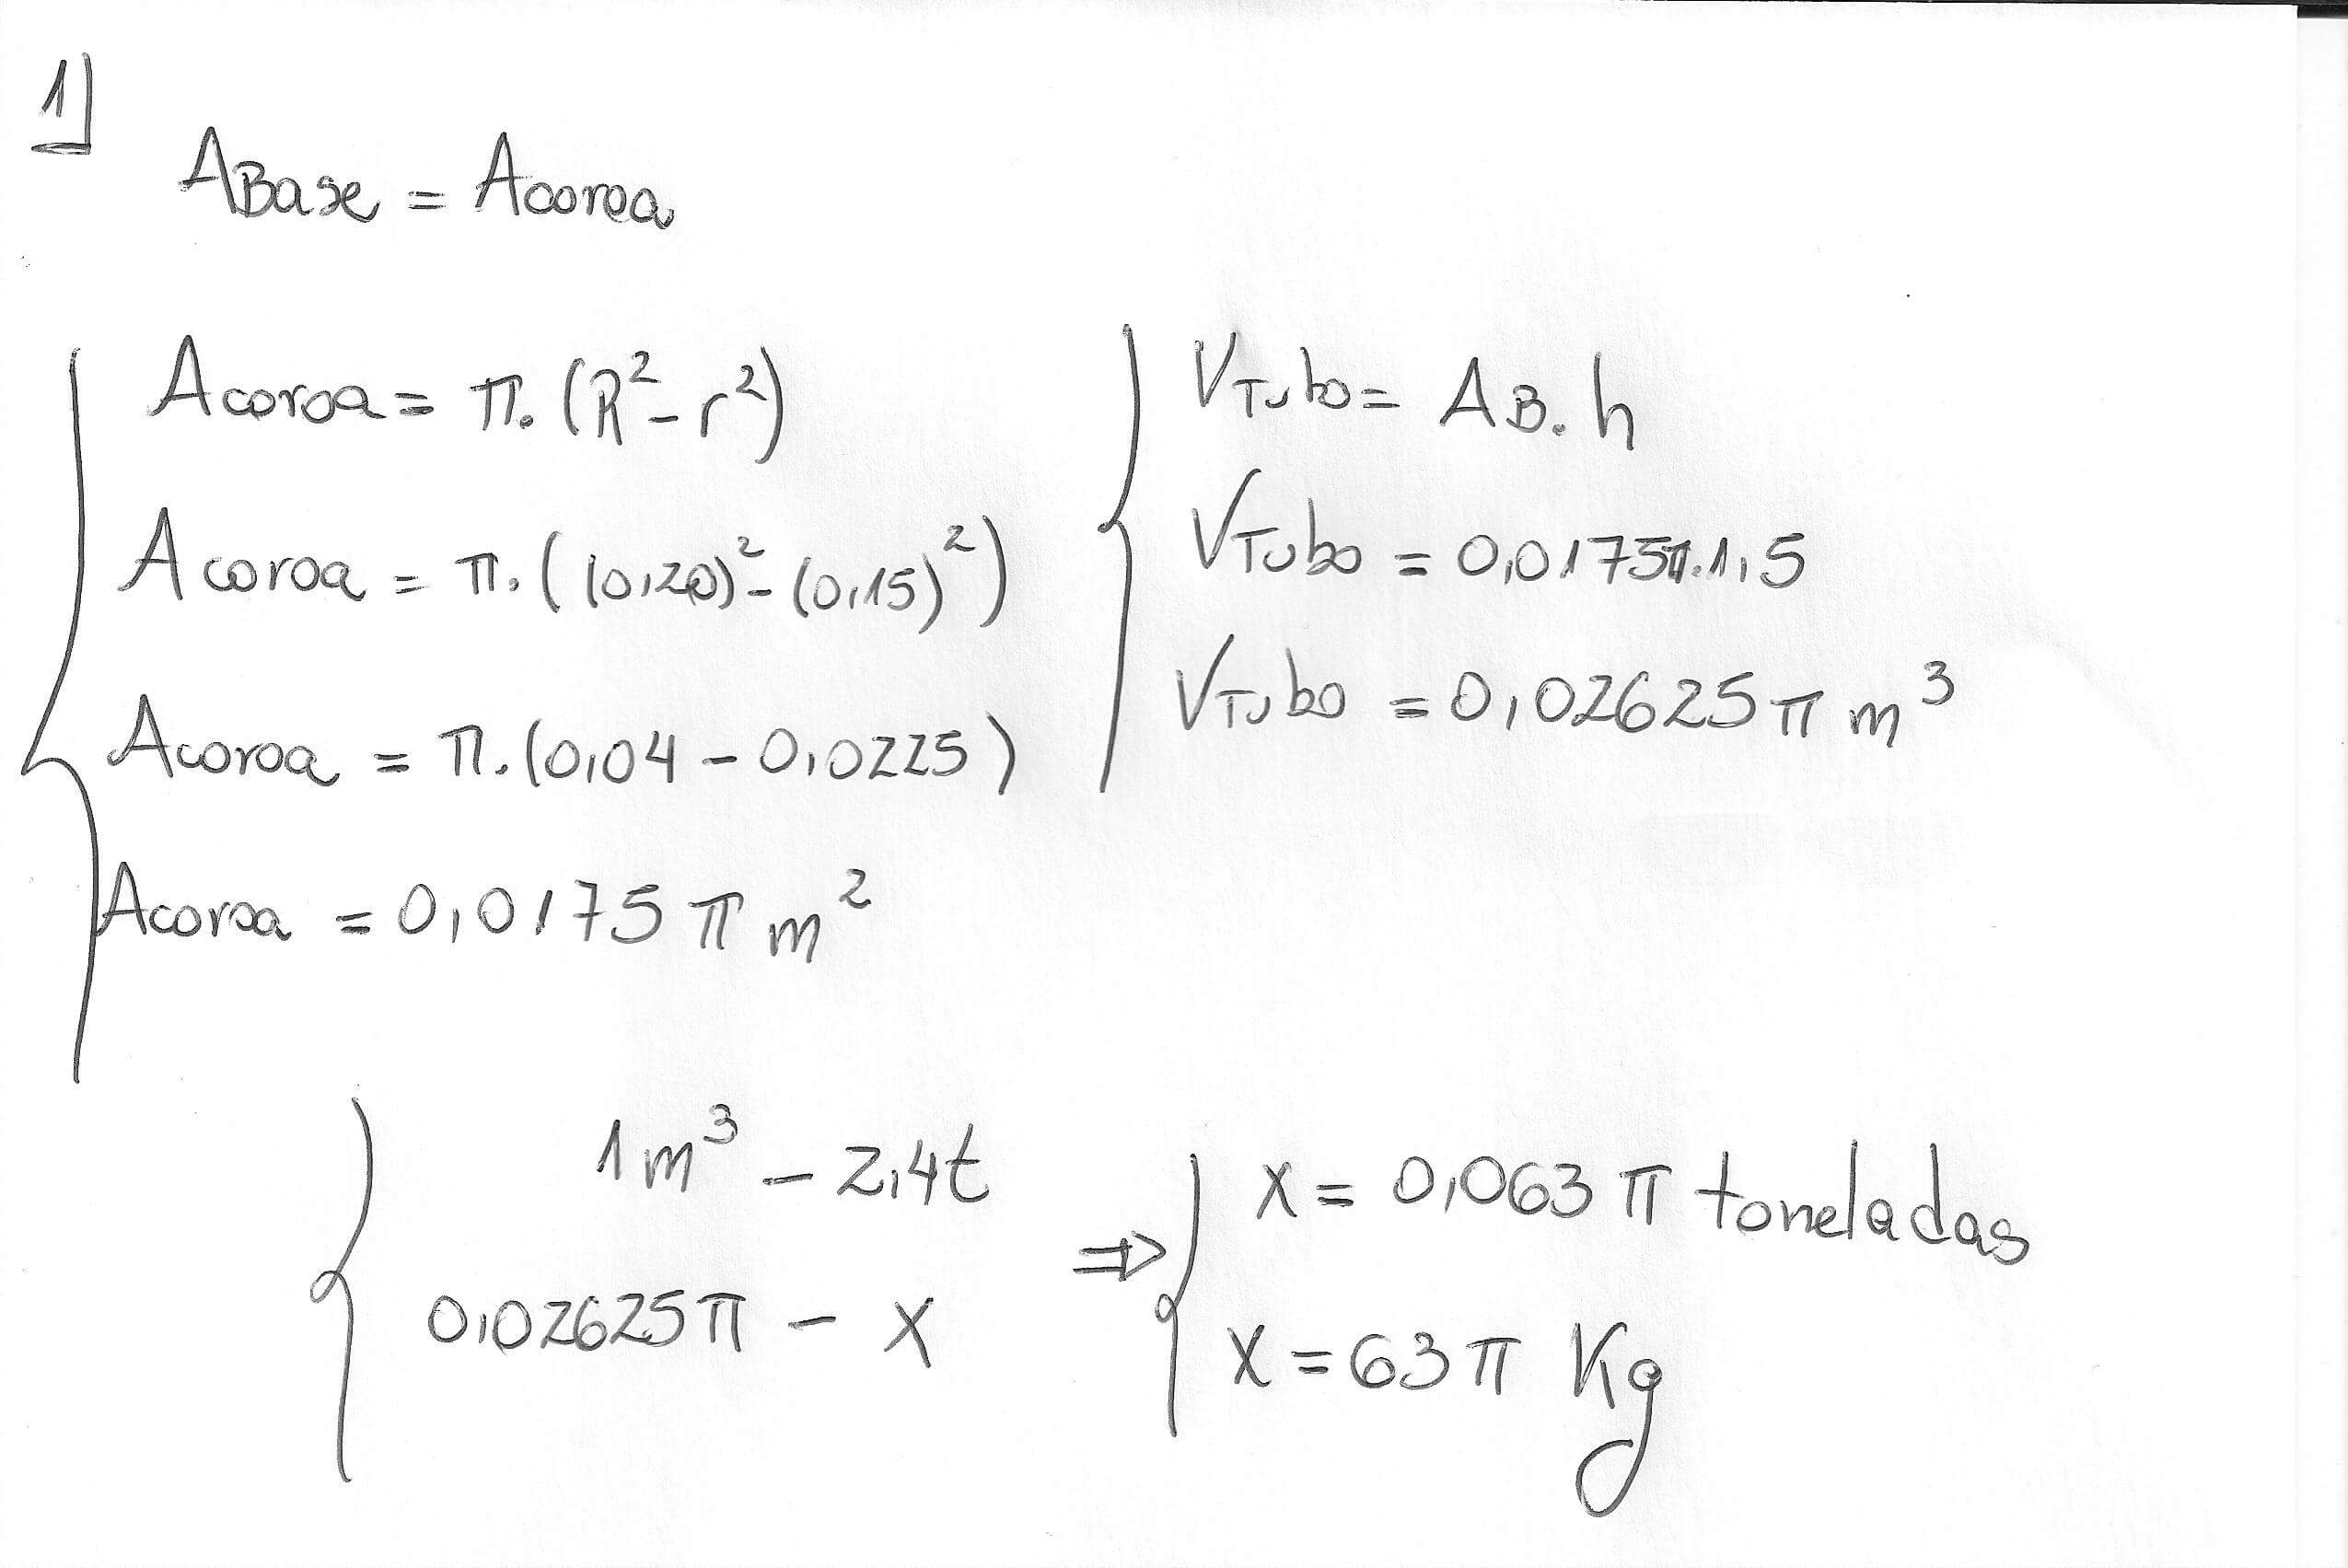 1)
ABase = Acoroa
Acoroa = π.(R²-r²)
Acoroa = π.((0,20)²-(0,15)²)
Acoroa = π.(0,04 - 0,0225)
Acoroa = 0,0175 π m²
VTubo = AB.h
VTubo = 0,0175π.1,5
VTubo = 0,02625 π m³
1m³ - 2,4t
0,02625π - x
⇒
x = 0,063 π toneladas
x = 63 π Kg